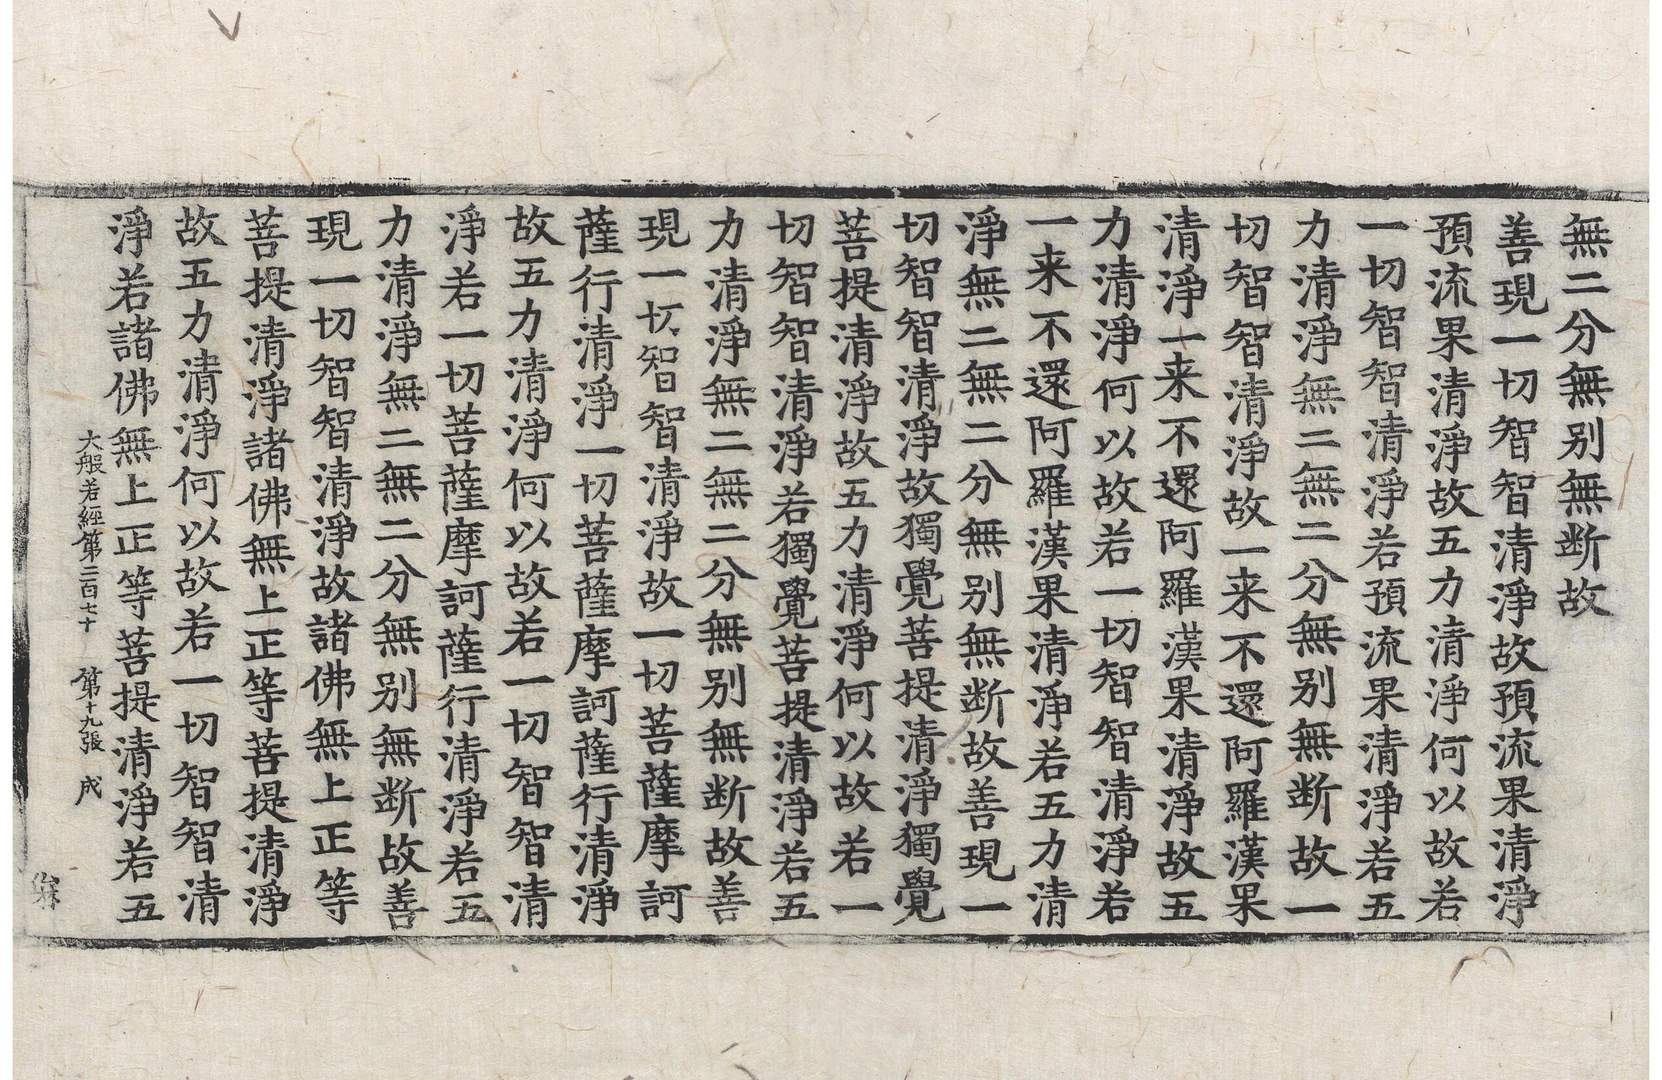 無二分無别無断故
善現一切智智清淨故預流果清淨
預流果清淨故五力清淨何以故若
一切智智清淨若預流果清淨若五
力清淨無二無二分無别無断故一
切智智清淨故一来不還阿羅漢果
清淨一来不還阿羅漢果清淨故五
力清淨何以故若一切智智清淨若
一来不還阿羅漢果清淨若五力清
淨無二無二分無别無断故善現一
切智智清淨故獨覺菩提清淨獨覺
菩提清淨故五力清淨何以故若一
切智智清淨若獨覺菩提清淨若五
力清淨無二無二分無别無断故善
現一切智智清淨故一切菩薩摩訶
薩行清淨一切菩薩摩訶薩行清淨
故五力清淨何以故若一切智智清
淨若一切菩薩摩訶薩行清淨若五
力清淨無二無二分無别無断故善
現一切智智清淨故諸佛無上正等
菩提清淨諸佛無上正等菩提清淨
故五力清淨何以故若一切智智清
淨若諸佛無上正等菩提清淨若五
大般若經第二百七十 第十九張 成